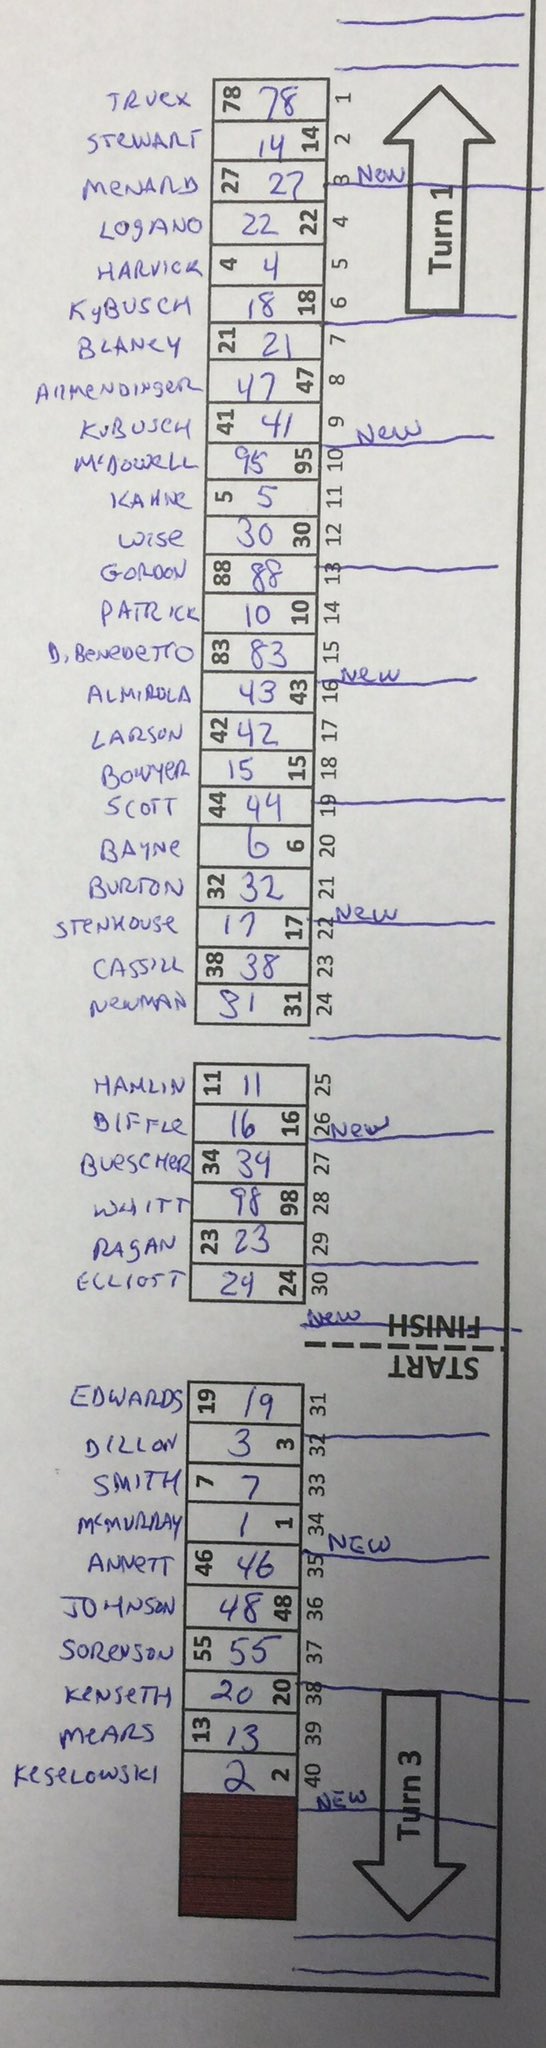 TRUEX 78 78 1
STEWART 14 14 2
MENARD 27 27 3 New
LOGANO 22 22 4
Turn 1
HARVICK 4 4 5
KyBUSCH 18 18 6
BLANEY 21 21 7
AllMENDINGER 47 47 8
KuBUSCH 41 41 9
New
McDOWELL 95 95 10
KAHNE 5 5 11
WISE 30 30 12
GORDON 88 88 13
PATRICK 10 10 14
DiBENEDETTO 83 83 15
ALMIROLA 43 43 16 New
LARSON 42 42 17
BOWYER 15 15 18
SCOTT 44 44 19
BAYNE 6 6 20
BURTON 32 32 21
STENHOUSE 17 17 22 New
CASSILL 38 38 23
NEWMAN 31 31 24
HAMLIN 11 11 25
BIFFLE 16 16 26 New
BUESCHER 34 34 27
WHITT 98 98 28
RAGAN 23 23 29
ELLIOTT 24 24 30
New FINISH
START
EDWARDS 19 19 31
DILLON 3 3 32
SMITH 7 7 33
McMURRAY 1 1 34
NEW
ANNETT 46 46 35
JOHNSON 48 48 36
SORENSON 55 55 37
KENSETH 20 20 38
MEARS 13 13 39
KESELOWSKI 2 2 40
NEW
Turn 3